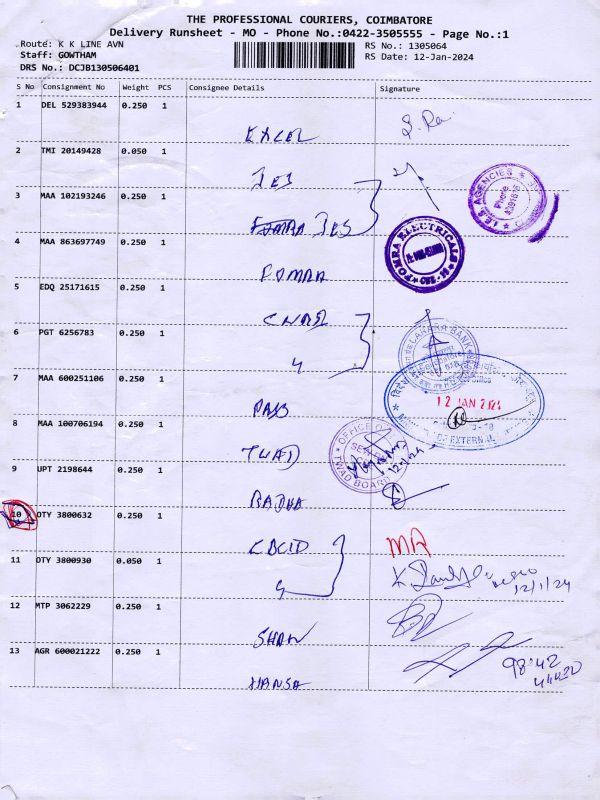 THE PROFESSIONAL COURIERS, COIMBATORE
Delivery Runsheet - MO - Phone No.:0422-3505555 - Page No.:1
Route: K K LINE AVN
RS No.: 1305064
Staff: GOWTHAM
RS Date: 12-Jan-2024
DRS No.: DCJB130506401
S No Consignment No Weight PCS Consignee Details Signature
1 DEL 529383944 0.250 1
2 TMI 20149428 0.050 1
IES
3 MAA 102193246 0.250 1
IES
I.E.S AGENCIES
Phone
4 MAA 863697749 0.250 1
FOMRA
FOMRA ELECTRICALS
5 EDQ 25171615 0.250 1
6 PGT 6256783 0.250 1
7 MAA 600251106 0.250 1
12 JAN 2024
OF EXTERNAL
8 MAA 100706194 0.250 1
TWAD
OFFICE
TWAD BOARD
12/1/24
9 UPT 2198644 0.250 1
RADHA
10 OTY 3800632 0.250 1
CBCID
MA
11 OTY 3800930 0.050 1
12/1/24
12 MTP 3062229 0.250 1
13 AGR 600021222 0.250 1
98:42
HANSA